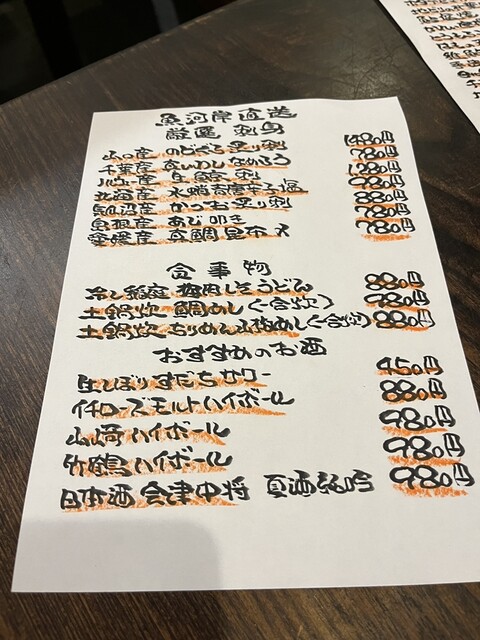 魚河岸直送
厳選 刺身
山口産 のどぐろ炙り刺 1480円
千葉産 真いわしなめろう 780円
産 刺 1280円
北海産 水蛸青唐辛子塩 980円
気仙沼産 かつお炙り刺 880円
島根産 あじ叩き 780円
愛媛産 真鯛昆布〆 780円
食事物
冷し稲庭 梅肉しそうどん 880円
土鍋炊 鯛めし(一合炊) 980円
土鍋炊 めし(一合炊) 880円
おすすめのお酒
生しぼりすだちサワー 450円
イチローズモルトハイボール 880円
山崎ハイボール 980円
竹鶴ハイボール 980円
日本酒 会津中将 夏酒純吟 980円